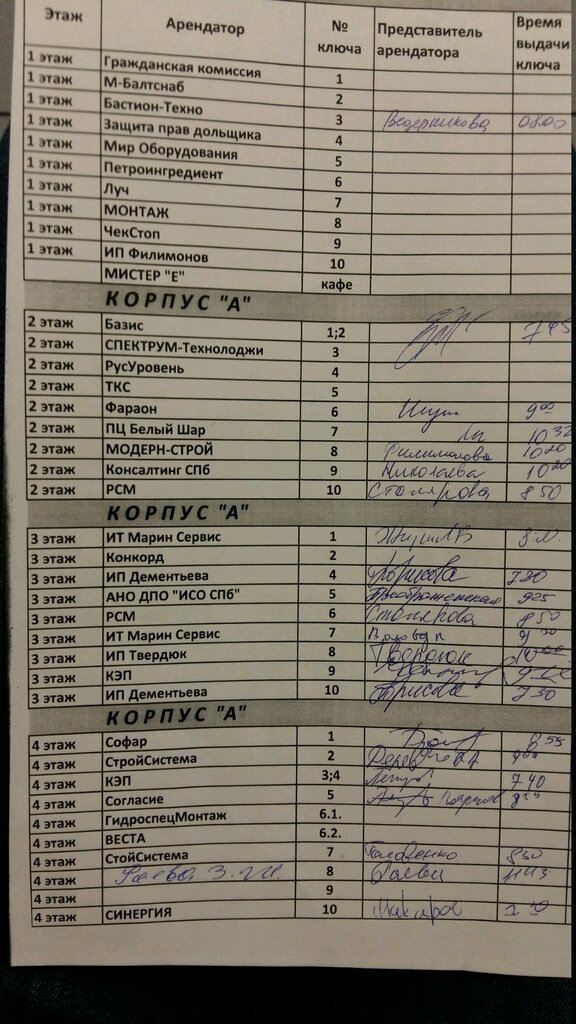 Этаж Арендатор № ключа Представитель арендатора Время выдачи ключа
1 этаж Гражданская комиссия 1
1 этаж М-Балтснаб 2
1 этаж Бастион-Техно 3
1 этаж Защита прав дольщика 4
1 этаж Мир Оборудования 5
1 этаж Петроингредиент 6
1 этаж Луч 7
1 этаж МОНТАЖ 8
1 этаж ЧекСтоп 9
1 этаж ИП Филимонов 10
МИСТЕР "Е" кафе
КОРПУС "А"
2 этаж Базис 1;2 7 45
2 этаж СПЕКТРУМ-Технолоджи 3
2 этаж РусУровень 4
2 этаж ТКС 5
2 этаж Фараон 6 9 00
2 этаж ПЦ Белый Шар 7 10 32
2 этаж МОДЕРН-СТРОЙ 8 Филимонова 10 20
2 этаж Консалтинг СПб 9 Николаева 10 20
2 этаж РСМ 10 Столярова 8 50
КОРПУС "А"
3 этаж ИТ Марин Сервис 1
3 этаж Конкорд 2
3 этаж ИП Дементьева 4 Борисова 730
3 этаж АНО ДПО "ИСО СПб" 5 Преображенская 925
3 этаж РСМ 6 Столярова 850
3 этаж ИТ Марин Сервис 7
3 этаж ИП Твердюк 8 Твердюк
3 этаж КЭП 9
3 этаж ИП Дементьева 10 Борисова 730
КОРПУС "А"
4 этаж Софар 1 8 55
4 этаж СтройСистема 2
4 этаж КЭП 3;4 740
4 этаж Согласие 5
4 этаж ГидроспецМонтаж 6.1.
4 этаж ВЕСТА 6.2.
4 этаж СтойСистема 7 850
4 этаж 8 1143
4 этаж 9
4 этаж СИНЕРГИЯ 10